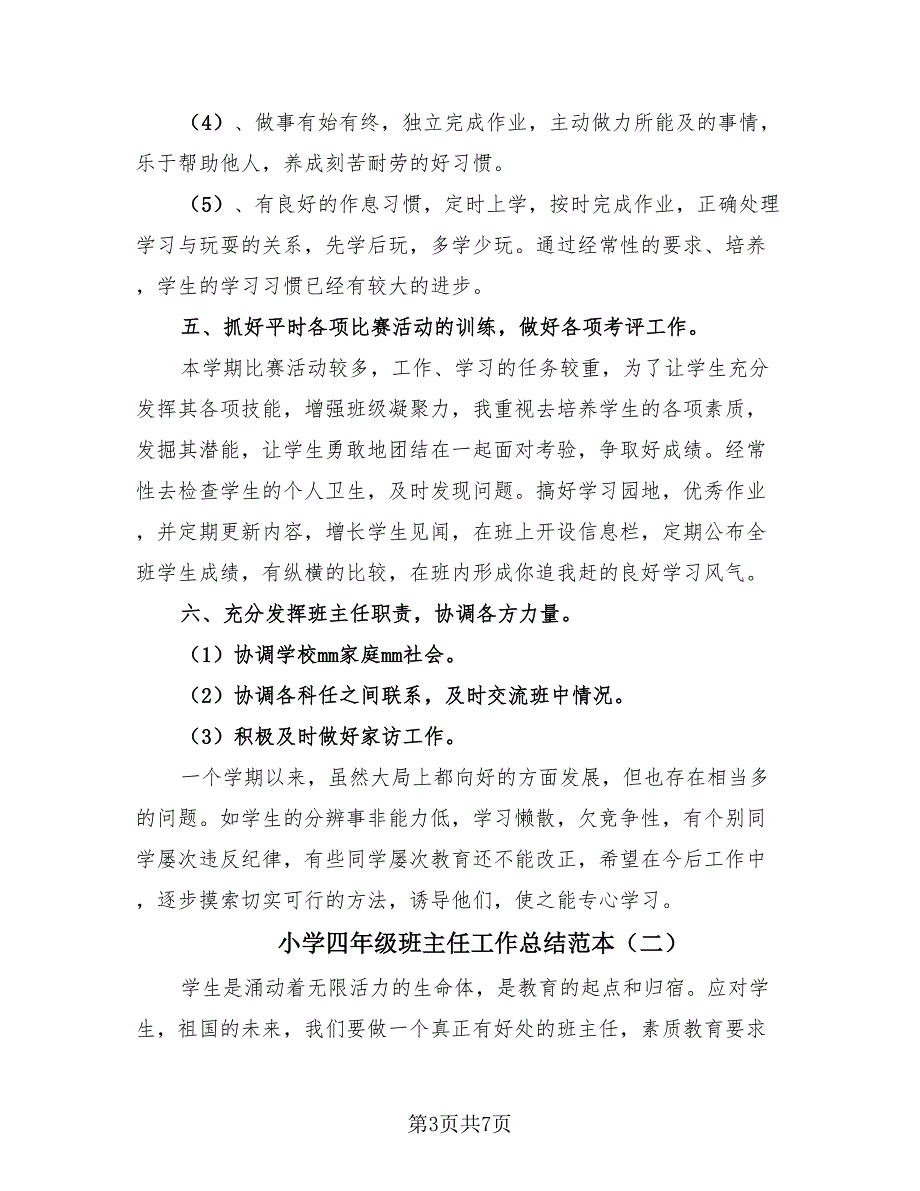 （4）、做事有始有终，独立完成作业，主动做力所能及的事情，
乐于帮助他人，养成刻苦耐劳的好习惯。
（5）、有良好的作息习惯，定时上学，按时完成作业，正确处理
学习与玩耍的关系，先学后玩，多学少玩。通过经常性的要求、培养
，学生的学习习惯已经有较大的进步。
五、抓好平时各项比赛活动的训练，做好各项考评工作。
本学期比赛活动较多，工作、学习的任务较重，为了让学生充分
发挥其各项技能，增强班级凝聚力，我重视去培养学生的各项素质，
发掘其潜能，让学生勇敢地团结在一起面对考验，争取好成绩。经常
性去检查学生的个人卫生，及时发现问题。搞好学习园地，优秀作业
，并定期更新内容，增长学生见闻，在班上开设信息栏，定期公布全
班学生成绩，有纵横的比较，在班内形成你追我赶的良好学习风气。
六、充分发挥班主任职责，协调各方力量。
（1）协调学校mm家庭mm社会。
（2）协调各科任之间联系，及时交流班中情况。
（3）积极及时做好家访工作。
一个学期以来，虽然大局上都向好的方面发展，但也存在相当多
的问题。如学生的分辨事非能力低，学习懒散，欠竞争性，有个别同
学屡次违反纪律，有些同学屡次教育还不能改正，希望在今后工作中
，逐步摸索切实可行的方法，诱导他们，使之能专心学习。
小学四年级班主任工作总结范本（二）
学生是涌动着无限活力的生命体，是教育的起点和归宿。应对学
生，祖国的未来，我们要做一个真正有好处的班主任，素质教育要求
第3页共7页